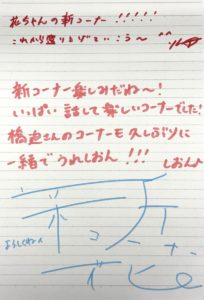 花ちゃんの新コーナー!!!!!
これから盛り上げていこう〜^^
新コーナー楽しみだね〜!
いっぱい話して楽しいコーナーでした!
橋迫さんのコーナーも久しぶりに
一緒でうれしおん!!!
しおんよ
よろしくねん